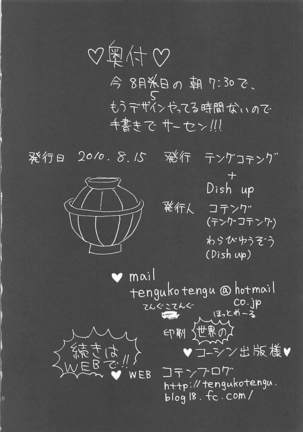 ♡奥付♡
今 8月5日の朝 7:30で、
もうデザインやってる時間ないので
手書きで サーセン!!!
発行日 2010.8.15 発行 テングコテング
+
Dish up
発行人 コテング
(テングコテング)
わらびゆうぞう
(Dish up)
♥ mail
tengukotengu@hotmail
co.jp
てんぐこてんぐ ほっとめーる
印刷 世界の
コーシン出版様♥
続きは
WEBで!!
♥ WEB コテンブログ
http://tengukotengu.
blog18.fc.com/